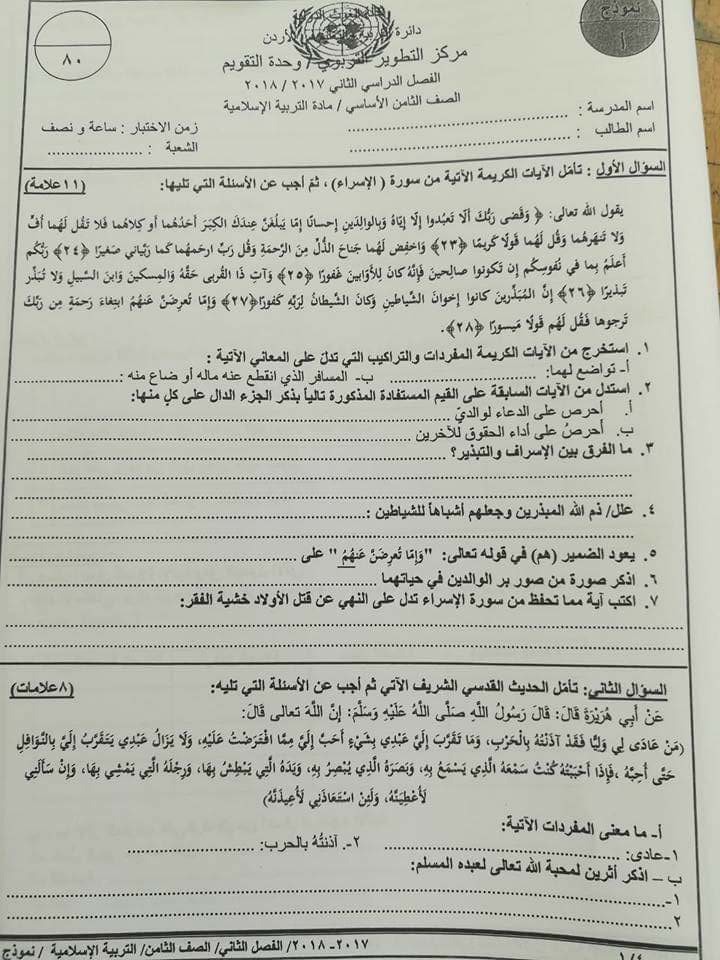 نموذج
أ
٨٠
دائرة
مركز التطوير التربوي / وحدة التقويم
الفصل الدراسي الثاني ٢٠١٧ / ٢٠١٨
الصف الثامن الأساسي / مادة التربية الإسلامية
اسم المدرسة : ........................................
اسم الطالب : ........................................
زمن الاختبار : ساعة و نصف
الشعبة : .....................
السؤال الأول : تأمّل الآيات الكريمة الآتية من سورة ( الإسراء) ، ثمّ أجب عن الأسئلة التي تليها: (١١علامة)
يقول الله تعالى: ﴿ وَقَضى رَبُّكَ أَلّا تَعبُدوا إِلّا إِيّاهُ وَبِالوالِدَينِ إِحسانًا إِمّا يَبلُغَنَّ عِندَكَ الكِبَرَ أَحَدُهُما أَو كِلاهُما فَلا تَقُل لَهُما أُفٍّ
وَلا تَنهَرهُما وَقُل لَهُما قَولًا كَريمًا ﴿٢٣﴾ وَاخفِض لَهُما جَناحَ الذُّلِّ مِنَ الرَّحمَةِ وَقُل رَبِّ ارحَمهُما كَما رَبَّياني صَغيرًا ﴿٢٤﴾ رَبُّكُم
أَعلَمُ بِما في نُفوسِكُم إِن تَكونوا صالِحينَ فَإِنَّهُ كانَ لِلأَوّابينَ غَفورًا ﴿٢٥﴾ وَآتِ ذَا القُربى حَقَّهُ وَالمِسكينَ وَابنَ السَّبيلِ وَلا تُبَذِّر
تَبذيرًا ﴿٢٦﴾ إِنَّ المُبَذِّرينَ كانوا إِخوانَ الشَّياطينِ وَكانَ الشَّيطانُ لِرَبِّهِ كَفورًا﴿٢٧﴾ وَإِمّا تُعرِضَنَّ عَنهُمُ ابتِغاءَ رَحمَةٍ مِن رَبِّكَ
تَرجوها فَقُل لَهُم قَولًا مَيسورًا ﴿٢٨﴾.
١. استخرج من الآيات الكريمة المفردات والتراكيب التي تدلّ على المعاني الآتية :
أ- تواضع لهما: .............................. ب- المسافر الذي انقطع عنه ماله أو ضاع منه :..............................
٢. استدل من الآيات السابقة على القيم المستفادة المذكورة تالياً بذكر الجزء الدال على كلٍ منها:
أ. أحرص على الدعاء لوالديّ ........................................
ب. أحرصُ على أداء الحقوق للآخرين ........................................
٣. ما الفرق بين الإسراف والتبذير؟ ........................................
........................................
........................................
٤. علل/ ذم الله المبذرين وجعلهم أشباهاً للشياطين :........................................
........................................
٥. يعود الضمير (هم) في قوله تعالى: "وَإِمّا تُعرِضَنَّ عَنهُمُ " على ........................................
٦. اذكر صورة من صور بر الوالدين في حياتهما ........................................
٧. اكتب آية مما تحفظ من سورة الإسراء تدل على النهي عن قتل الأولاد خشية الفقر:
........................................
........................................
السؤال الثاني: تأمّل الحديث القدسي الشريف الآتي ثم أجب عن الأسئلة التي تليه: (٨علامات)
عَنْ أَبِي هُرَيْرَةَ قَالَ: قَالَ رَسُولُ اللَّهِ صَلَّى اللَّهُ عَلَيْهِ وَسَلَّمَ: إِنَّ اللَّهَ تعالى قَالَ:
(مَنْ عَادَى لِي وَلِيًّا فَقَدْ آذَنْتُهُ بِالْحَرْبِ، وَمَا تَقَرَّبَ إِلَيَّ عَبْدِي بِشَيْءٍ أَحَبَّ إِلَيَّ مِمَّا افْتَرَضْتُ عَلَيْهِ، وَلَا يَزَالُ عَبْدِي يَتَقَرَّبُ إِلَيَّ بِالنَّوَافِلِ
حَتَّى أُحِبَّهُ ،فَإِذَا أَحْبَبْتُهُ كُنْتُ سَمْعَهُ الَّذِي يَسْمَعُ بِهِ، وَبَصَرَهُ الَّذِي يُبْصِرُ بِهِ، وَيَدَهُ الَّتِي يَبْطِشُ بِهَا، وَرِجْلَهُ الَّتِي يَمْشِي بِهَا، وَإِنْ سَأَلَنِي
لَأُعْطِيَنَّهُ، وَلَئِنْ اسْتَعَاذَنِي لَأُعِيذَنَّهُ)
أ- ما معنى المفردات الآتية:
١-عادى: .............................. ٢-. آذنتُهُ بالحرب: ..............................
ب – اذكر أثرين لمحبة الله تعالى لعبده المسلم:
١- ........................................
٢ ........................................
٢٠١٧-٢٠١٨/ الفصل الثاني/ الصف الثامن/ التربية الإسلامية / نموذج
١/٤